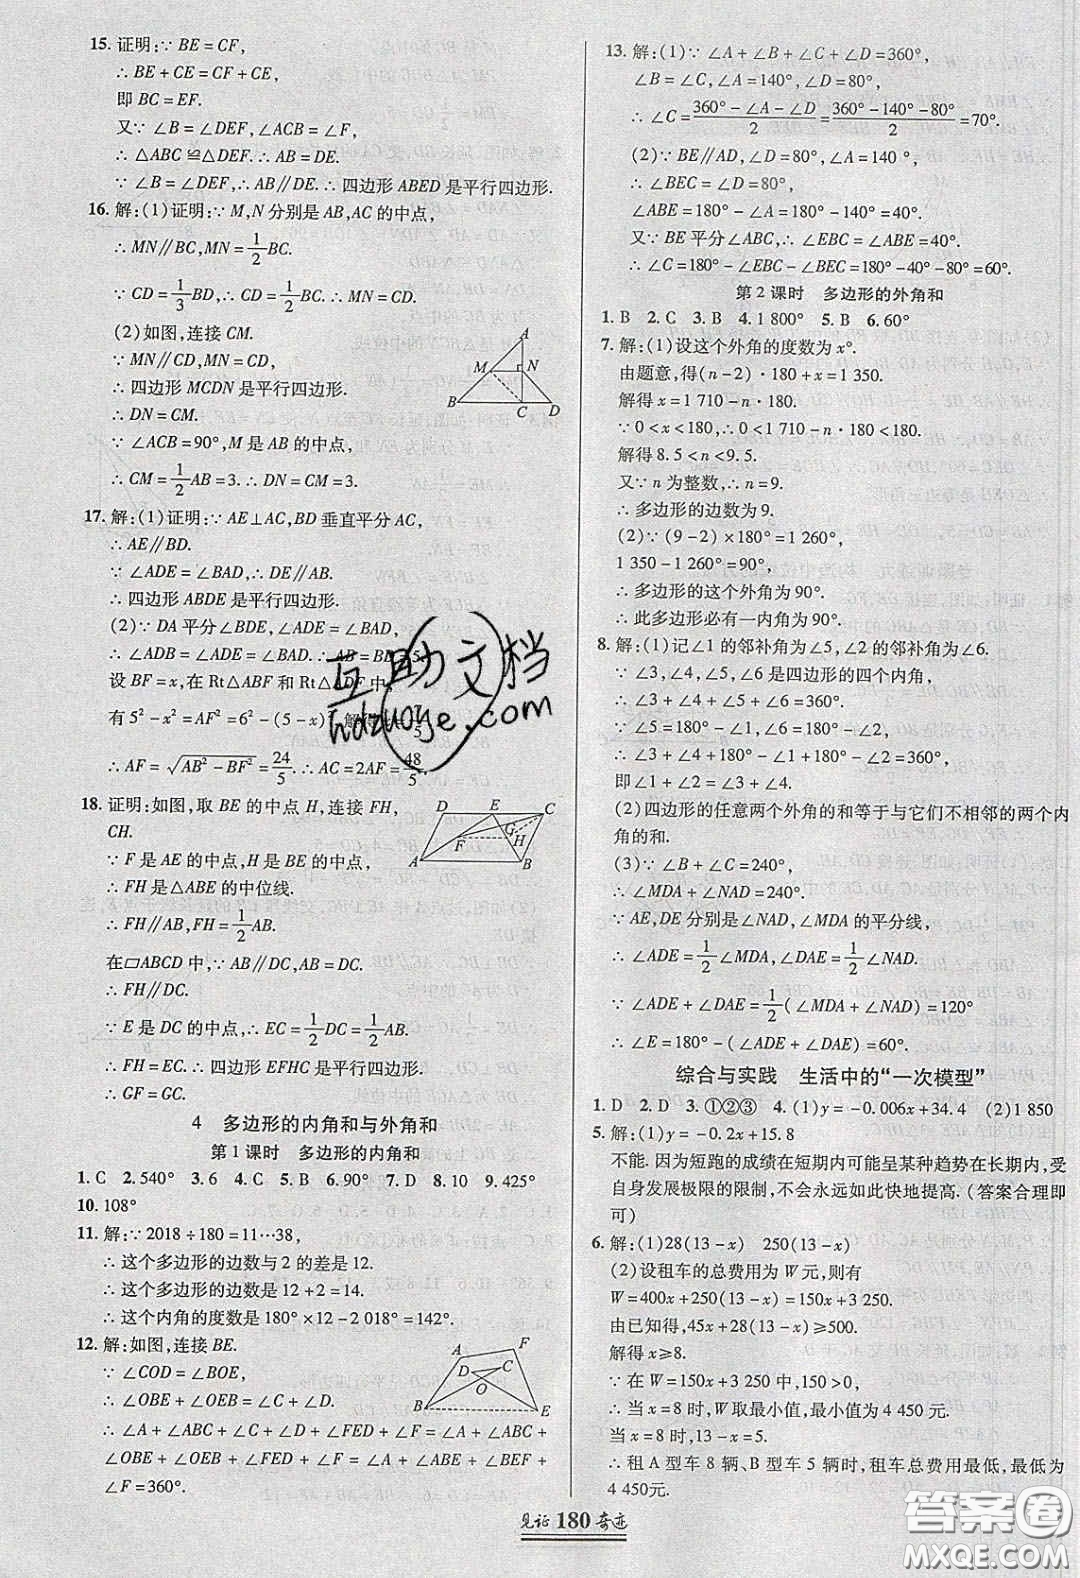 15. 证明:∵ BE = CF,
∴ BE + CE = CF + CE,
即 BC = EF.
又∵ ∠B = ∠DEF, ∠ACB = ∠F,
∴ △ABC ≌ △DEF. ∴ AB = DE.
∵ ∠B = ∠DEF, ∴ AB∥DE. ∴ 四边形 ABED 是平行四边形.
16. 解:(1)证明:∵ M,N 分别是 AB,AC 的中点,
∴ MN∥BC, MN = 1/2 BC.
∵ CD = 1/3 BD, ∴ CD = 1/2 BC. ∴ MN = CD.
(2)如图,连接 CM.
∵ MN∥CD, MN = CD,
∴ 四边形 MCDN 是平行四边形.
∴ DN = CM.
∵ ∠ACB = 90°, M 是 AB 的中点,
∴ CM = 1/2 AB = 3. ∴ DN = CM = 3.
A
M N
B C D
17. 解:(1)证明:∵ AE⊥AC, BD 垂直平分 AC,
∴ AE∥BD.
∵ ∠ADE = ∠BAD, ∴ DE∥AB.
∴ 四边形 ABDE 是平行四边形.
(2)∵ DA 平分∠BDE, ∴ ∠ADE = ∠ADB.
∴ ∠ADB = ∠BAD. ∴ AB = BD = 5.
设 BF = x, 在 Rt△ABF 和 Rt△ADF 中,
有 5² - x² = AF² = 6² - (5 - x)²
∴ AF = √(AB² - BF²) = 24/5. ∴ AC = 2AF = 48/5.
18. 证明:如图,取 BE 的中点 H,连接 FH,
CH.
∵ F 是 AE 的中点,H 是 BE 的中点,
∴ FH 是△ABE 的中位线.
∴ FH∥AB, FH = 1/2 AB.
在▱ABCD 中, AB∥DC, AB = DC.
∴ FH∥DC.
∵ E 是 DC 的中点, ∴ EC = 1/2 DC = 1/2 AB.
∴ FH = EC. ∴ 四边形 EFHC 是平行四边形.
∴ GF = GC.
D E C
F G H
A B
4 多边形的内角和与外角和
第 1 课时 多边形的内角和
1. C 2. 540° 3. 6 4. C 5. B 6. 90° 7. D 8. 10 9. 425°
10. 108°
11. 解:∵ 2018 ÷ 180 = 11…38,
∴ 这个多边形的边数与 2 的差是 12.
∴ 这个多边形的边数是 12 + 2 = 14.
∴ 这个内角的度数是 180° × 12 - 2 018° = 142°.
12. 解:如图,连接 BE.
∵ ∠COD = ∠BOE,
∴ ∠OBE + ∠OEB = ∠C + ∠D.
∴ ∠A + ∠ABC + ∠DEF + ∠F = ∠A + ∠ABC +
∠OBE + ∠OEB + ∠FED + ∠F = ∠A + ∠ABE + ∠BEF +
∠F = 360°.
A F
D C
O
B E
13. 解:(1)∵ ∠A + ∠B + ∠C + ∠D = 360°,
∠B = ∠C, ∠A = 140°, ∠D = 80°,
∴ ∠C = (360° - ∠A - ∠D)/2 = (360° - 140° - 80°)/2 = 70°.
(2)∵ BE∥AD, ∠A = 140°,
∴ ∠BEC = ∠D = 80°,
∠ABE = 180° - ∠A = 180° - 140° = 40°.
又∵ BE 平分∠ABC, ∴ ∠EBC = ∠ABE = 40°.
∴ ∠C = 180° - ∠EBC - ∠BEC = 180° - 40° - 80° = 60°.
第 2 课时 多边形的外角和
1. B 2. C 3. B 4. 1 800° 5. B 6. 60°
7. 解:(1)设这个外角的度数为 x°.
由题意,得(n - 2)·180 + x = 1 350.
解得 x = 1 710 - n·180.
∵ 0 < x < 180, ∴ 0 < 1 710 - n·180 < 180.
解得 8.5 < n < 9.5.
又∵ n 为整数, ∴ n = 9.
∴ 多边形的边数为 9.
(2)∵ (9 - 2) × 180° = 1 260°,
1 350° - 1 260° = 90°,
∴ 多边形的这个外角为 90°.
∴ 此多边形必有一内角为 90°.
8. 解:(1)记∠1 的邻补角为∠5,∠2 的邻补角为∠6.
∵ ∠3,∠4,∠5,∠6 是四边形的四个内角,
∴ ∠3 + ∠4 + ∠5 + ∠6 = 360°.
∵ ∠5 = 180° - ∠1, ∠6 = 180° - ∠2,
∴ ∠3 + ∠4 + 180° - ∠1 + 180° - ∠2 = 360°.
即∠1 + ∠2 = ∠3 + ∠4.
(2)四边形的任意两个外角的和等于与它们不相邻的两个内
角的和.
(3)∵ ∠B + ∠C = 240°,
∴ ∠MDA + ∠NAD = 240°.
∵ AE,DE 分别是∠NAD,∠MDA 的平分线,
∴ ∠ADE = 1/2 ∠MDA, ∠DAE = 1/2 ∠NAD.
∴ ∠ADE + ∠DAE = 1/2 (∠MDA + ∠NAD) = 120°
∴ ∠E = 180° - (∠ADE + ∠DAE) = 60°.
综合与实践 生活中的“一次模型”
1. D 2. D 3. ①②③ 4. (1) y = -0.006x + 34.4 (2) 1 850
5. 解:(1) y = -0.2x + 15.8
不能. 因为短跑的成绩在短期内可能呈某种趋势在长期内,受
自身发展极限的限制,不会永远如此快地提高.(答案合理即
可)
6. 解:(1) 28(13 - x) 250(13 - x)
(2)设租车的总费用为 W 元,则有
W = 400x + 250(13 - x) = 150x + 3 250.
由已知得,45x + 28(13 - x) ≥ 500.
解得 x ≥ 8.
∵ 在 W = 150x + 3 250 中, 150 > 0,
∴ 当 x = 8 时, W 取最小值,最小值为 4 450 元.
当 x = 8 时, 13 - x = 5.
∴ 租 A 型车 8 辆、B 型车 5 辆时,租车总费用最低,最低为
4 450 元.
见证 180 奇迹
互助文档
hdzuoye.com
答案圈
MXQE.COM